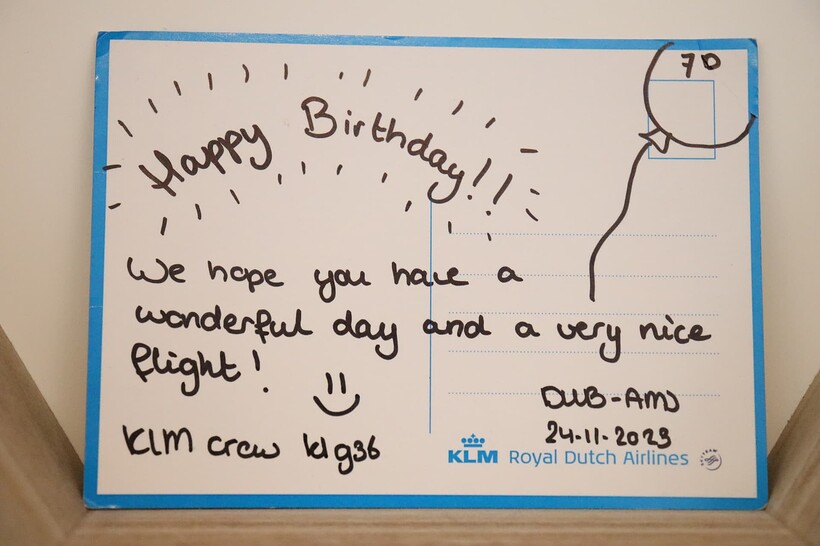 7D
Happy Birthday!!
We hope you have a
wonderful day and a very nice
flight!
DUB-AMS
24-11-2023
KLM crew kl936
KLM Royal Dutch Airlines